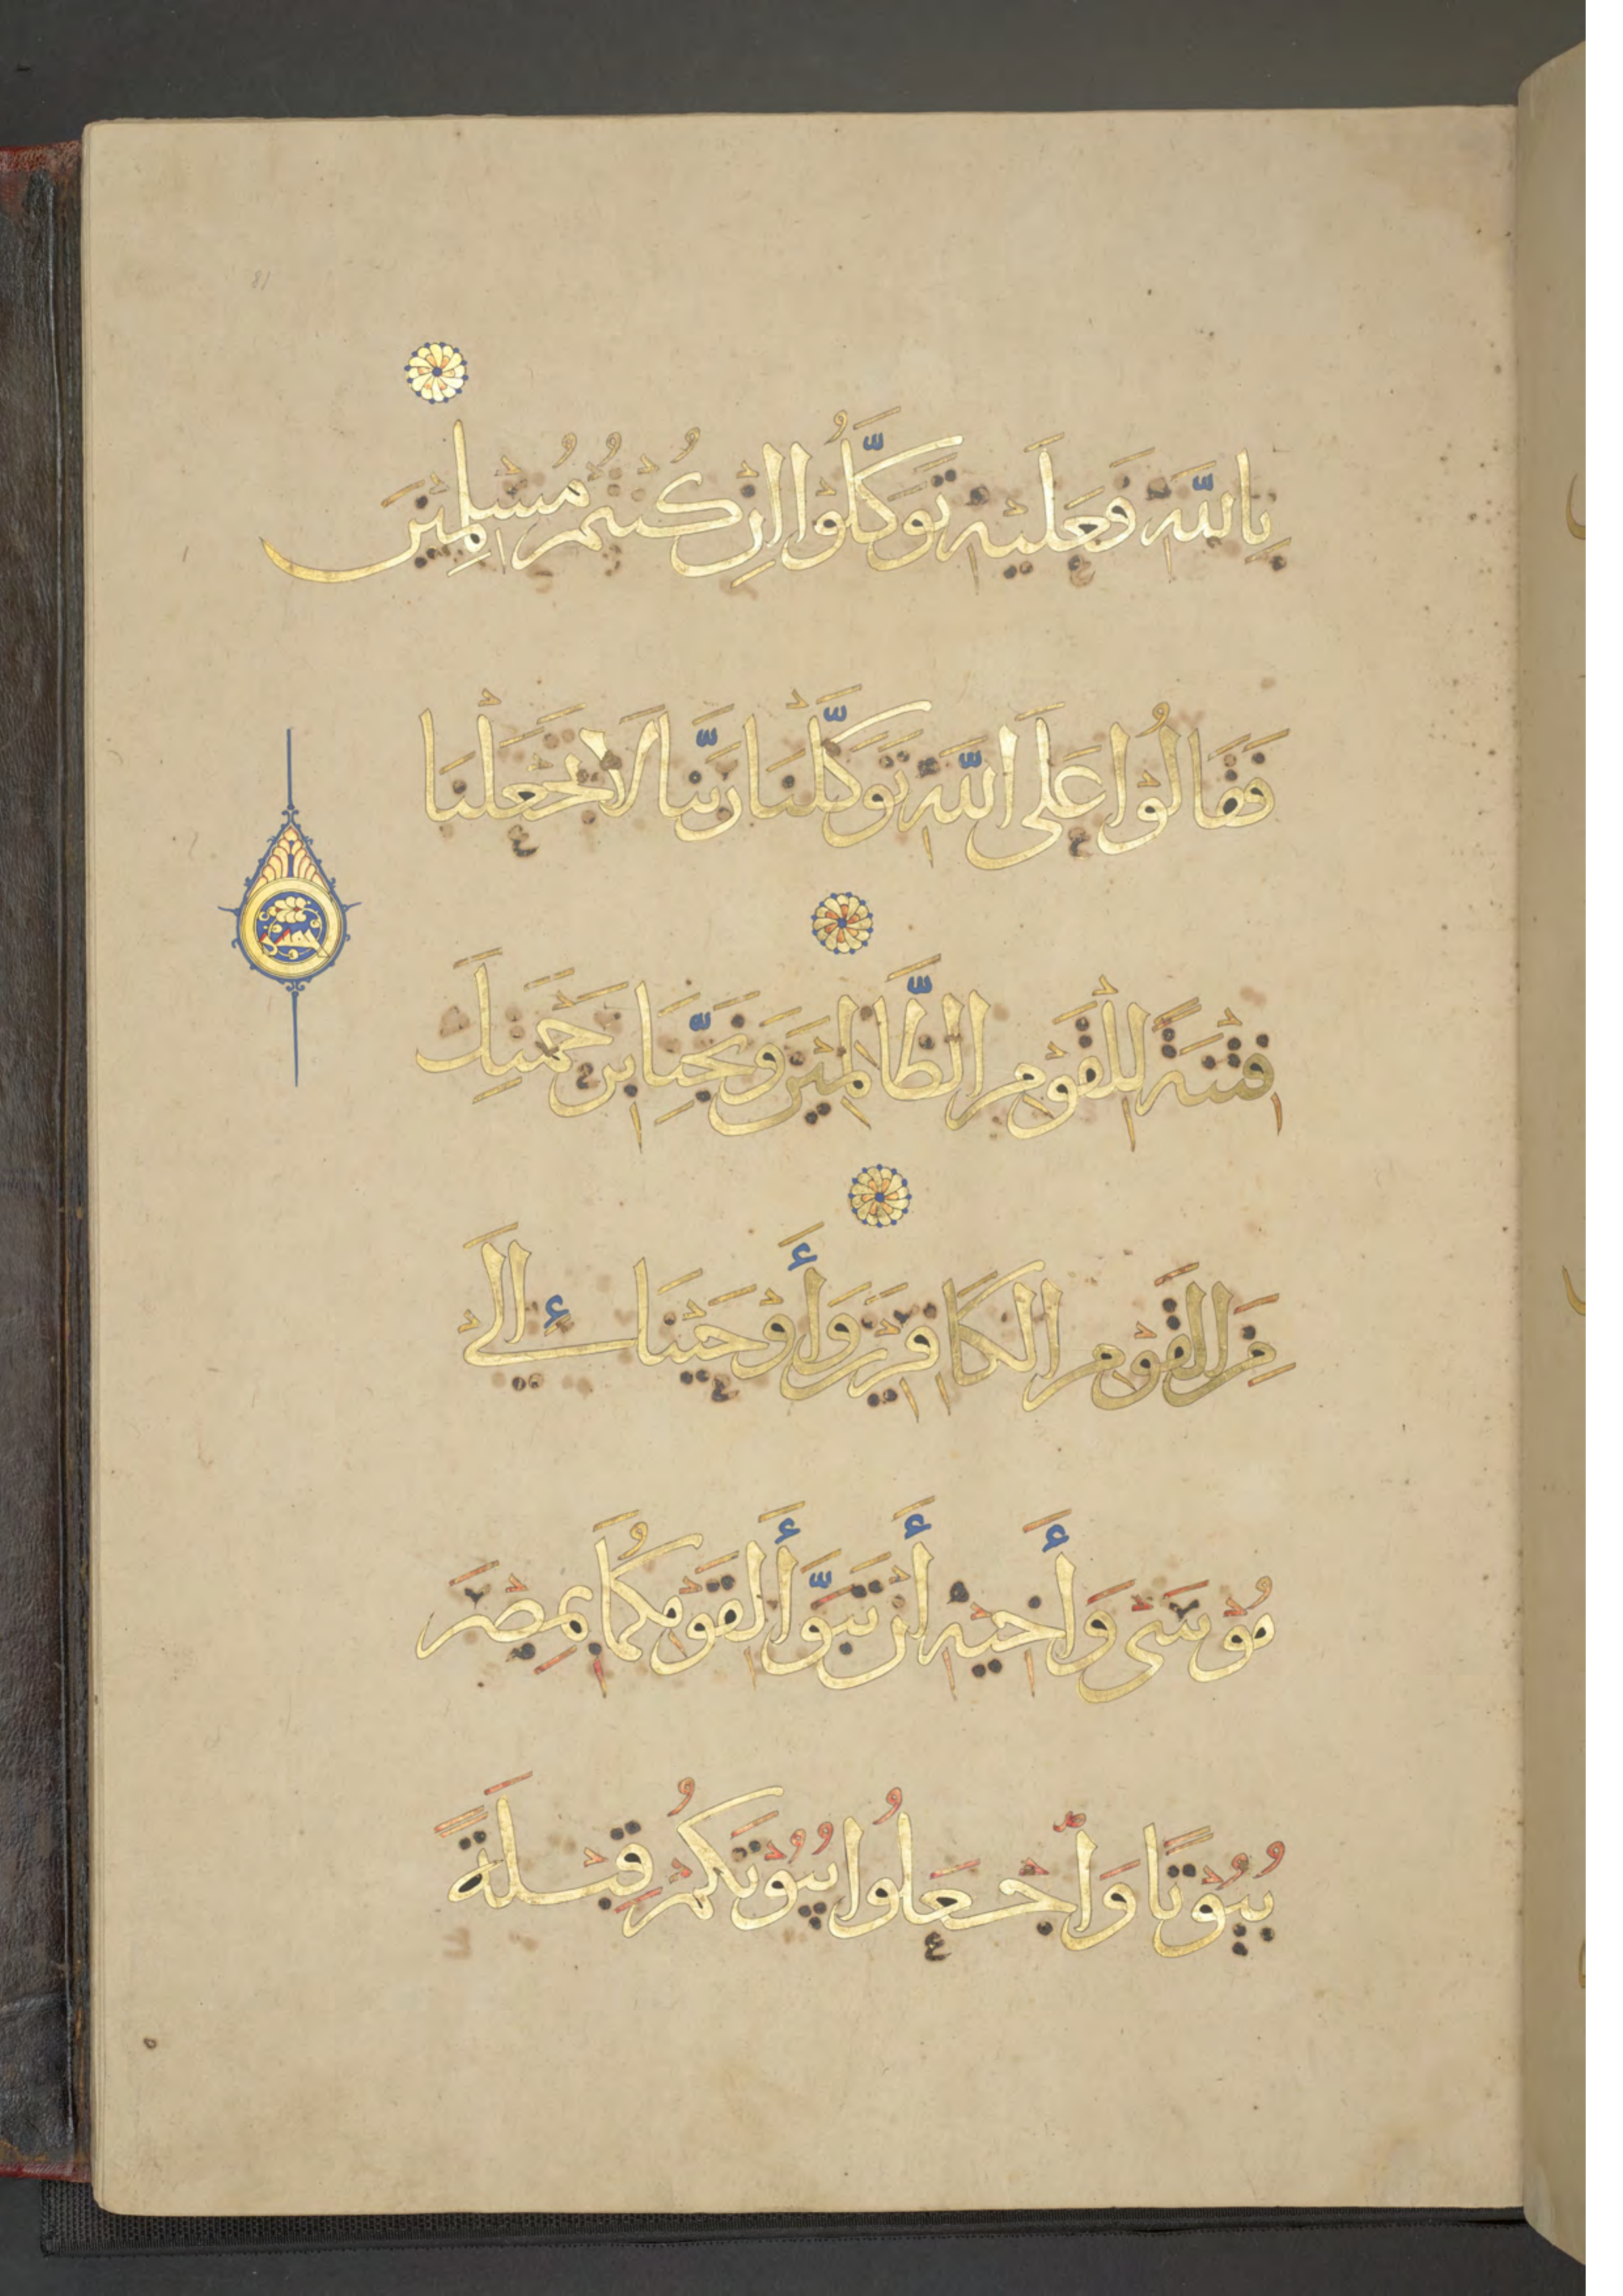 بِاللَّهِ فَعَلَيْهِ تَوَكَّلُوْا اِنْ كُنْتُمْ مُسْلِمِيْنَ
فَقَالُوْا عَلَى اللَّهِ تَوَكَّلْنَا رَبَّنَا لَا تَجْعَلْنَا
فِتْنَةً لِلْقَوْمِ الظَّالِمِيْنَ وَنَجِّنَا بِرَحْمَتِكَ
مِنَ الْقَوْمِ الْكَافِرِيْنَ وَأَوْحَيْنَا إِلَى
مُوْسَى وَأَخِيْهِ أَنْ تَبَوَّأَ لِقَوْمِكُمَا بِمِصْرَ
بُيُوْتًا وَاجْعَلُوا بُيُوْتَكُمْ قِبْلَةً